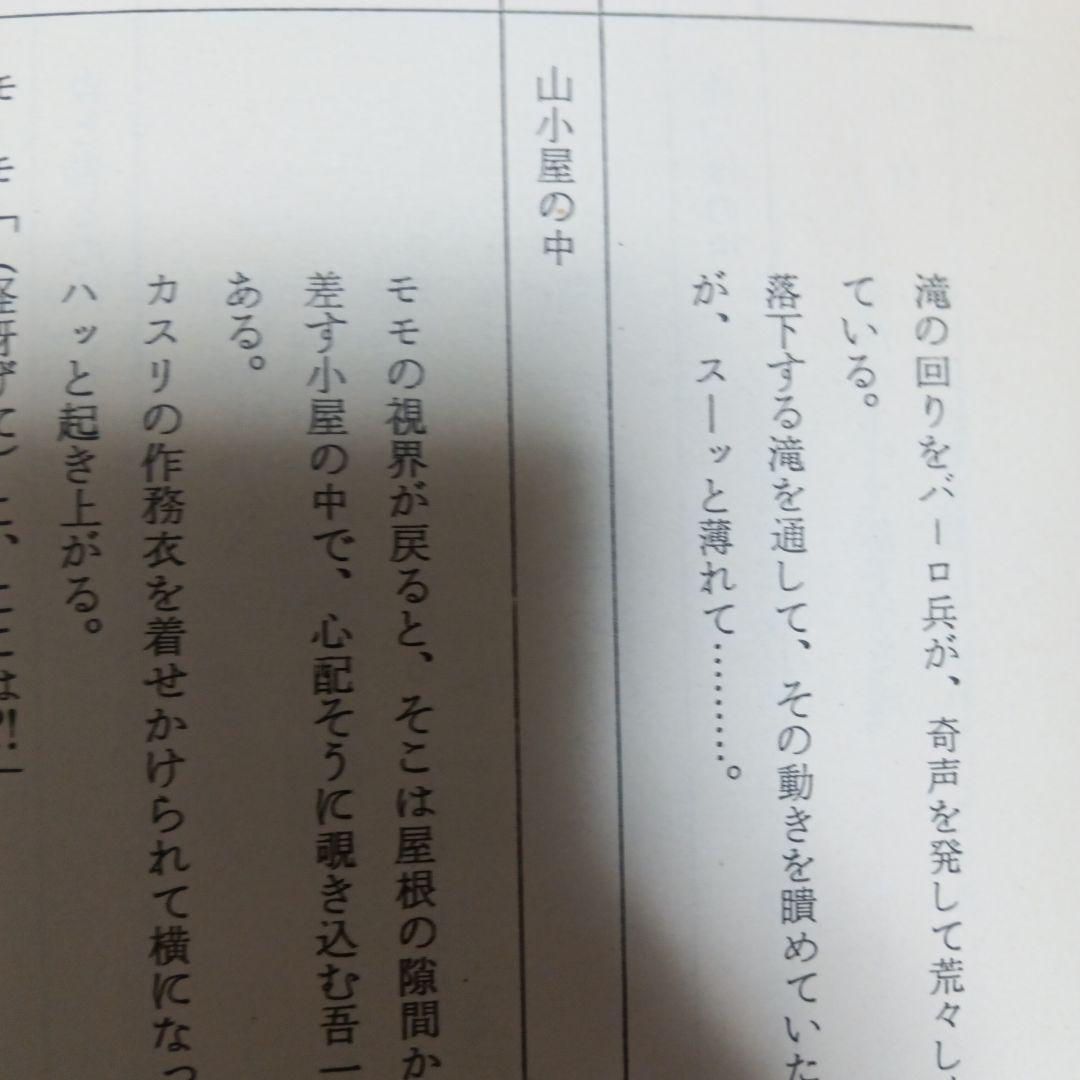 滝の回りをバーロ兵が、奇声を発して荒々し
ている。
落下する滝を通して、その動きを瞶めていた
が、スーッと薄れて………。
山小屋の中
モモの視界が戻ると、そこは屋根の隙間か
差す小屋の中で、心配そうに覗き込む吾一
ある。
カスリの作務衣を着せかけられて横になっ
ハッと起き上がる。
モモ「（怪訝げに）こ、ここは⁈」